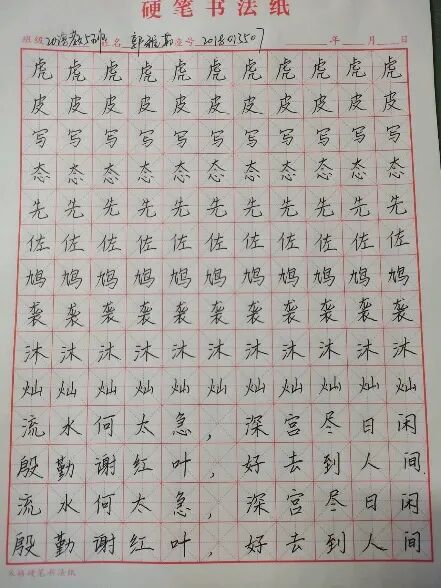 硬笔书法纸
班级 姓名 学号 年 月 日
虎虎虎虎虎虎虎虎虎虎虎
皮皮皮皮皮皮皮皮皮皮皮
写写写写写写写写写写写
态态态态态态态态态态态
先先先先先先先先先先先
佐佐佐佐佐佐佐佐佐佐佐
鸠鸠鸠鸠鸠鸠鸠鸠鸠鸠鸠
袭袭袭袭袭袭袭袭袭袭袭
沐沐沐沐沐沐沐沐沐沐沐
灿灿灿灿灿灿灿灿灿灿灿
流水何太急，深宫尽日闲
殷勤谢红叶，好去到人间.
流水何太急，深宫尽日闲
殷勤谢红叶，好去到人间.
硬笔书法纸